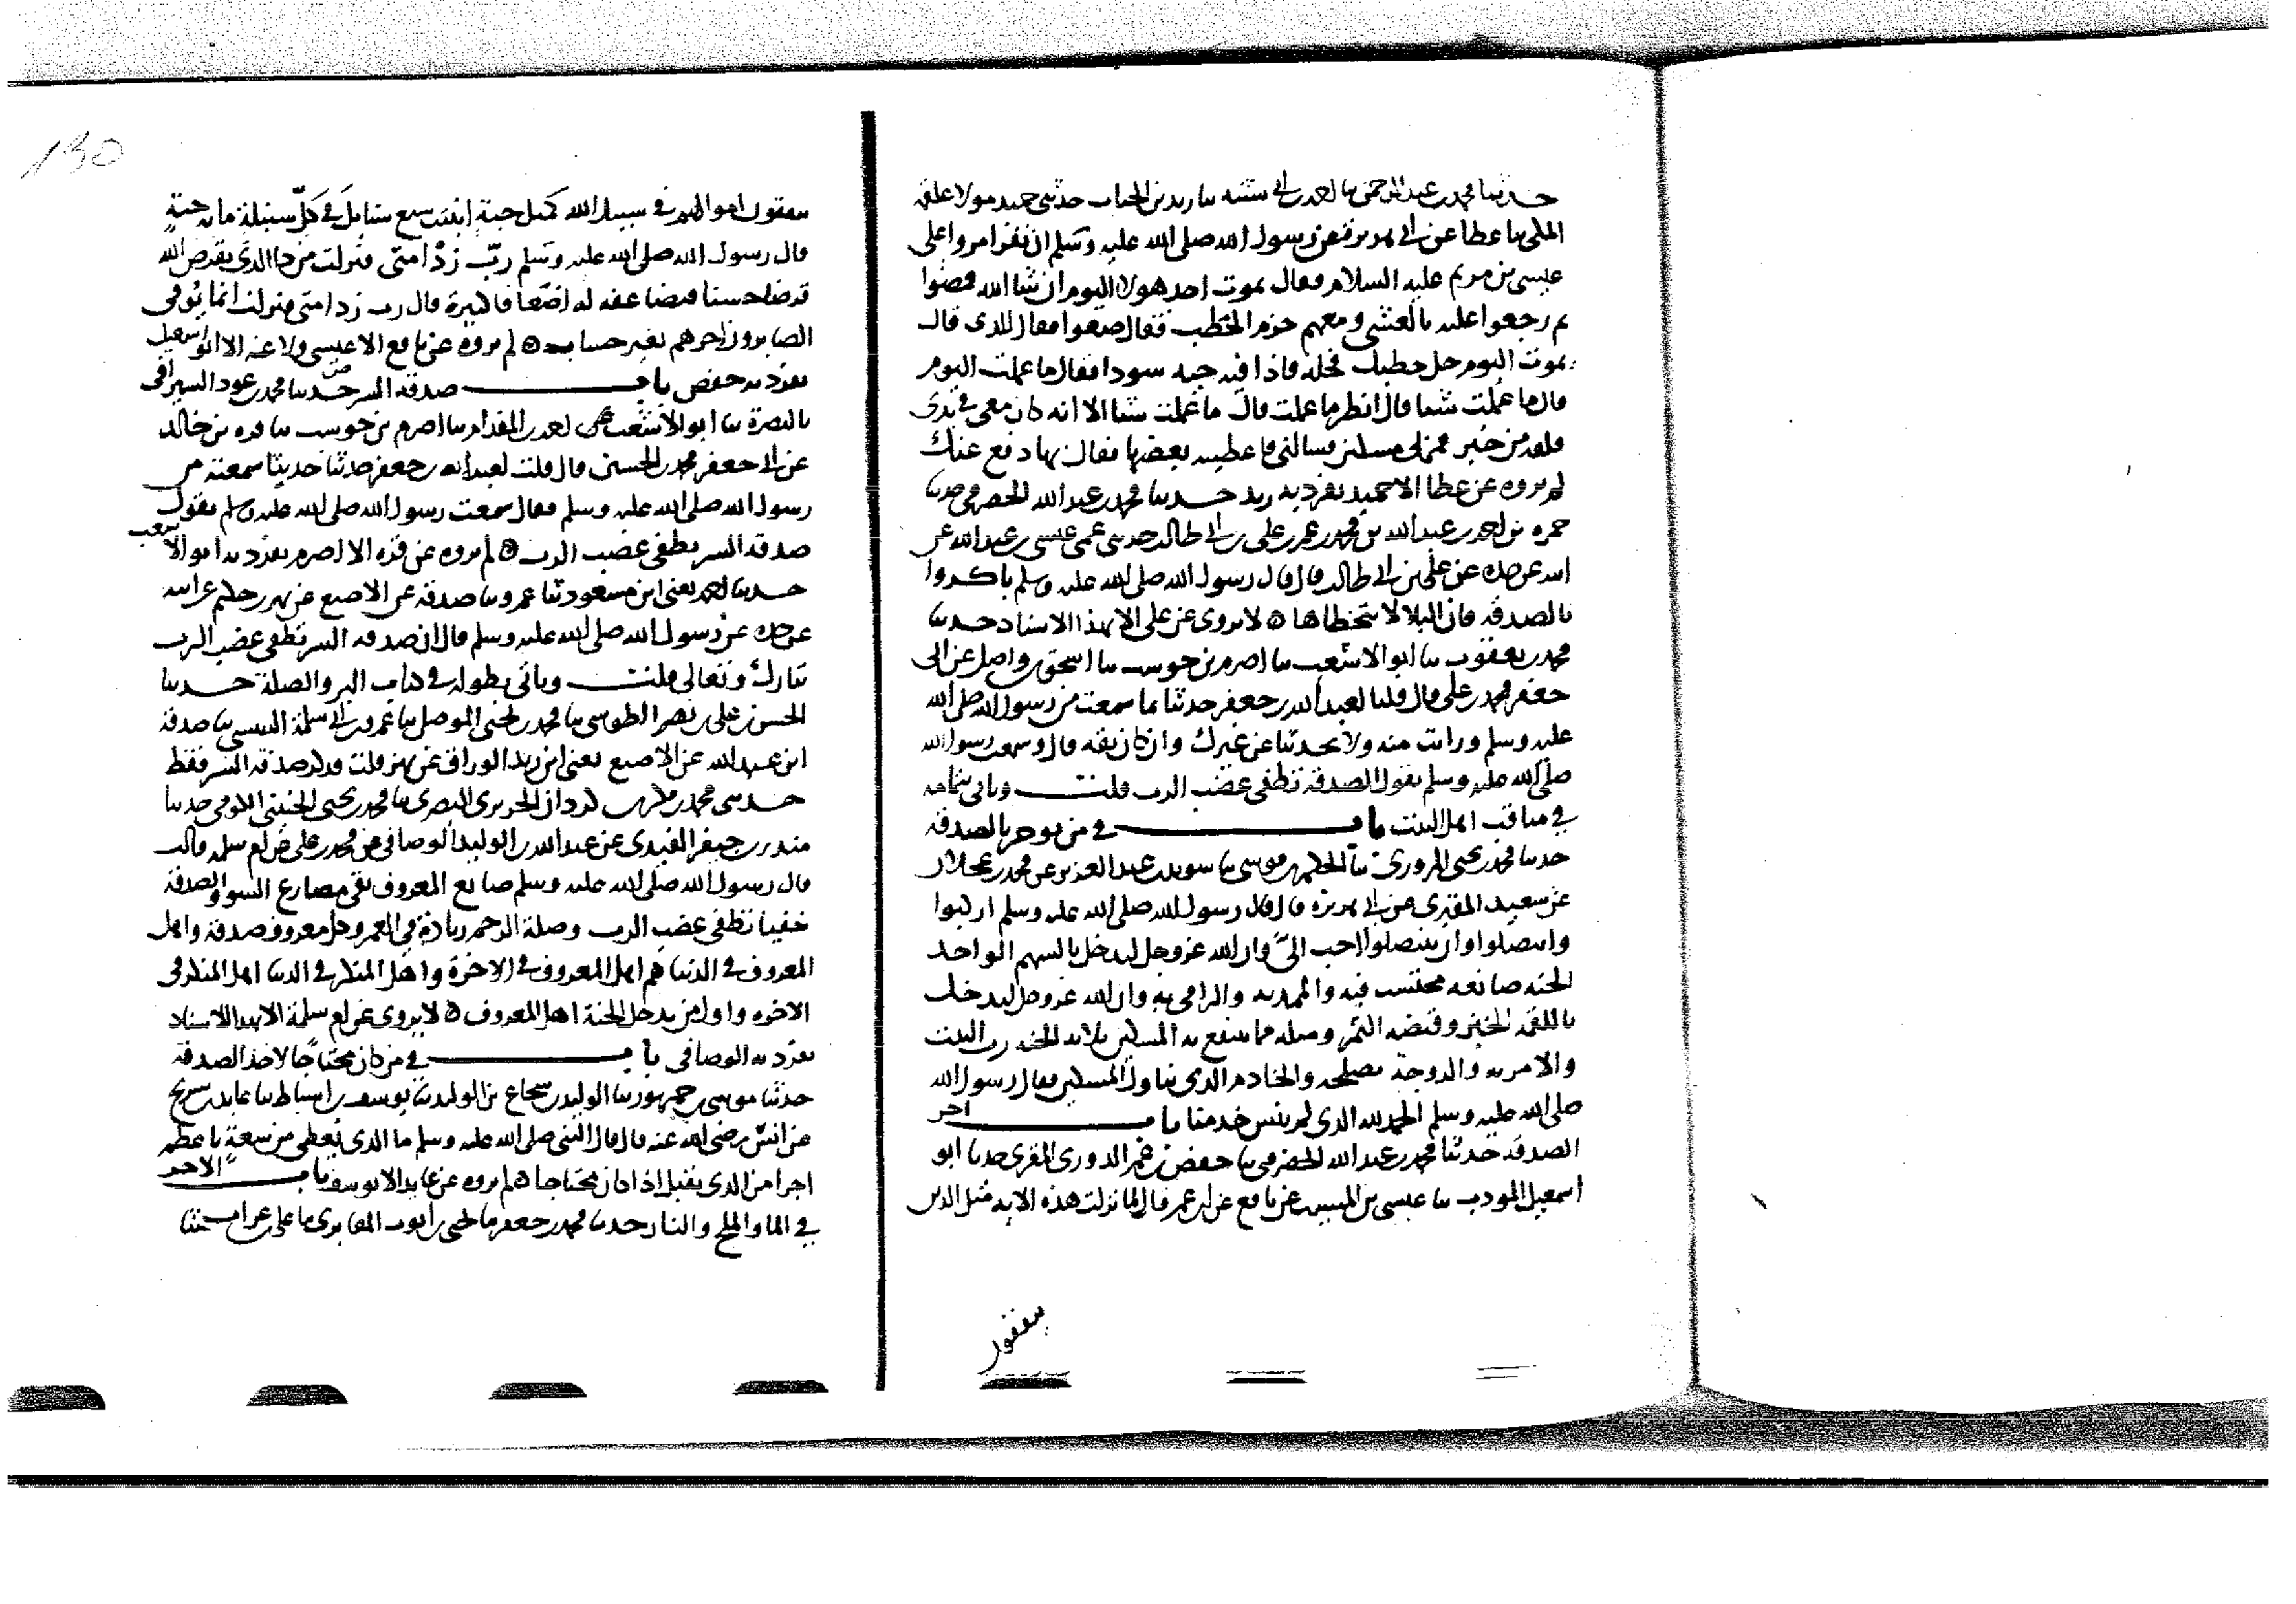 حدثنا محمد بن عبد الرحمن ثنا احمد بن ابي شيبة ثنا زيد بن الحباب حدثني حميد مولا علقمة
المكي ثنا عطا عن ابي هريرة عن رسول الله صلى الله عليه وسلم ان نفرا مروا على
عيسى بن مريم عليه السلام فقال يموت احد هولا اليوم ان شا الله فمضوا
ثم رجعوا عليه بالعشي ومعهم حزم الحطب فقال ضعوا فقال للذي قال
يموت اليوم حل حطبك فحله فاذا فيه حية سودا فقال ما عملت اليوم
قال ما عملت شيا قال انظر ما عملت قال ما عملت شيا الا انه كان معي في يدي
فلقة من خبز فمر بي مسكين فسالني فاعطيته بعضها فقال بها دفع عنك
لم يروه عن عطا الا حميد تفرد به زيد حدثنا محمد بن عبد الله الحضرمي حدثنا
حمزة بن احمد بن عبد الله بن محمد بن عمر بن علي بن ابي طالب حدثني عمي عيسى بن عبد الله عن
ابيه عن جده عن علي بن ابي طالب قال قال رسول الله صلى الله عليه وسلم باكروا
بالصدقة فان البلا لا يتخطاها ه لا يروى عن علي الا بهذا الاسناد حدثنا
محمد بن يعقوب ثنا ابو الاشعب ثنا اصرم بن حوشب ثنا اسحق بن واصل عن ابي
جعفر محمد بن علي قال قلنا لعبد الله بن جعفر حدثنا ما سمعت من رسول الله صلى الله
عليه وسلم ورايت منه ولا تحدثنا عن غيرك وان كان ثقة قال وسمعت رسول الله
صلى الله عليه وسلم يقول الصدقة تطفي غضب الرب قلت وياتي بتمامه
في مناقب اهل البيت باب في من يوجر بالصدقة
حدثنا محمد بن يحيى المروزي ثنا الحكم بن موسى ثنا سويد بن عبد العزيز عن محمد بن عجلان
عن سعيد المقبري عن ابي هريرة قال قال رسول الله صلى الله عليه وسلم اركبوا
وانتضلوا وان تنتضلوا احب اليّ وان الله عز وجل ليدخل بالسهم الواحد
الجنة صانعه محتسب فيه والممد به والرامي به وان الله عز وجل ليدخل
باللقمة الخبز وقبضة التمر ومثله مما ينتفع به المسكين ثلاثة الجنة رب البيت
والامر به والزوجة تصلحه والخادم الذي يناول المسكين فقال رسول الله
صلى الله عليه وسلم الحمد لله الذي لم ينس خدمنا باب اجر
الصدقة حدثنا محمد بن عبد الله الحضرمي ثنا حفص بن عمر الدوري المقري حدثنا ابو
اسمعيل المودب ثنا عيسى بن المسيب عن نافع عن ابن عمر قال لما نزلت هذه الاية مثل الذين
ينفقون
ينفقون اموالهم في سبيل الله كمثل حبة انبتت سبع سنابل في كل سنبلة ماية حبة
قال رسول الله صلى الله عليه وسلم ربّ زد امتي فنزلت من ذا الذي يقرض الله
قرضا حسنا فيضاعفه له اضعافا كثيرة قال رب زد امتي فنزلت انما يوفى
الصابرون اجرهم بغير حساب ه لم يروه عن نافع الا عيسى ولا عنه الا ابو اسمعيل
تفرد به حفص باب صدقة السر حدثنا محمد بن عود السيرافي
بالبصرة ثنا ابو الاشعب احمد بن المقدام ثنا اصرم بن حوشب ثنا قرة بن خالد
عن ابي جعفر محمد بن الحسين قال قلت لعبد الله بن جعفر حدثنا حديثا سمعته من
رسول الله صلى الله عليه وسلم فقال سمعت رسول الله صلى الله عليه وسلم يقول
صدقة السر تطفي غضب الرب ه لم يروه عن قرة الا اصرم تفرد به ابو الاشعب
حدثنا احمد يعني ابن مسعود ثنا عمرو ثنا صدقة عن الاصبع عن بهز بن حكيم عن ابيه
عن جده عن رسول الله صلى الله عليه وسلم قال ان صدقة السر تطفي غضب الرب
تبارك وتعالى قلت وياتي بطوله في كتاب البر والصلة حدثنا
الحسن بن علي بن نصر الطوسي ثنا محمد بن يحيى الموصلي ثنا عمرو بن ابي سلمة التنيسي ثنا صدقة
ابن عبد الله عن الاصبع يعني ابن زيد الوراق عن بهز قلت فذكر صدقة السر فقط
حدثني محمد بن بكر بن كردان الحريري البصري ثنا محمد بن يحيى الحنيني الكوفي حدثنا
مندر بن جيفر العبدي عن عبد الله بن الوليد الوصافي عن محمد بن علي عن ام سلمة قالت
قال رسول الله صلى الله عليه وسلم صنايع المعروف تقي مصارع السو والصدقة
خفيا تطفي غضب الرب وصلة الرحم زيادة في العمر وكل معروف صدقة واهل
المعروف في الدنيا هم اهل المعروف في الاخرة واهل المنكر في الدنيا اهل المنكر في
الاخرة واول من يدخل الجنة اهل المعروف ه لا يروى عن ام سلمة الا بهذا الاسناد
تفرد به الوصافي باب في من كان محتاجا لاخذ الصدقة
حدثنا موسى بن جمهور ثنا الوليد بن شجاع بن الوليد ثنا يوسف بن اسباط ثنا عايذ بن شريح
عن انس رضي الله عنه قال قال النبي صلى الله عليه وسلم ما الذي يعطي من سعة باعظم
اجرا من الذي يقبل اذا كان محتاجا ه لم يروه عن عايذ الا يوسف باب الاجر
في الما والملح والنار حدثنا محمد بن جعفر ثنا يحيى بن ايوب المقابري ثنا علي بن غراب
130